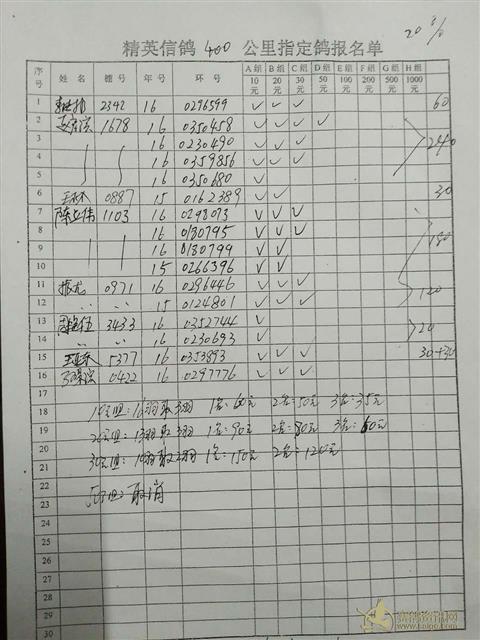 20%
精英信鸽 400 公里指定鸽报名单
序号 姓名 棚号 年号 环号 A组10元 B组20元 C组30元 D组50元 E组100元 F组200元 G组500元 H组1000元
1 2342 16 0296599 ✓ ✓ ✓ 60
2 1678 16 0350458 ✓ ✓ ✓ ✓
3 16 0230490 ✓ ✓ ✓ 240
4 16 0359856 ✓ ✓ ✓
5 16 0350680 ✓
6 0887 15 0162389 ✓ ✓ 30
7 陈立伟 1103 16 0298073 ✓ ✓ ✓
8 16 0180795 ✓ ✓ ✓
9 16 0180799 ✓ ✓ 180
10 15 0266396 ✓ ✓
11 0971 16 0296446 ✓ ✓ ✓
12 〃 〃 15 0124801 ✓ ✓ ✓ 120
13 3433 16 0352744 ✓
14 〃 〃 16 0230693 ✓ 20
15 5377 16 0353893 ✓ ✓ ✓ 30+30
16 0422 16 0297776 ✓ ✓ ✓
17
18 10元组: 16羽取3羽 1名:60元 2名:50元 3名:35元
19 20元组: 13羽取3羽 1名:90元 2名:80元 3名:60元
20
21 30元组: 10羽取2羽 1名:150元 2名:120元
22
23 50组: 取消
24
25
26
27
28
29
30